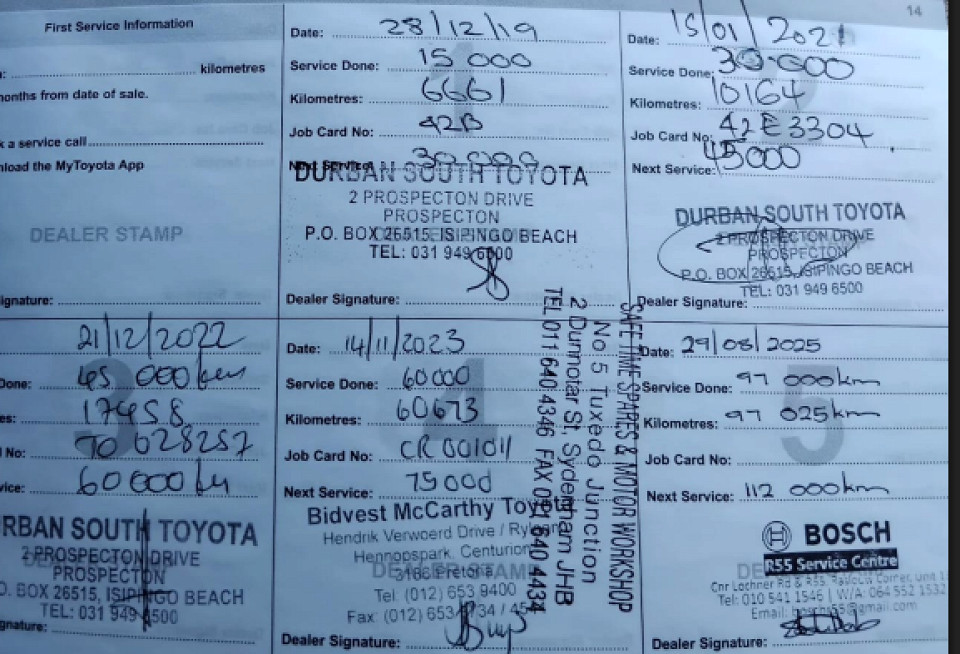 14
First Service Information
kilometres
months from date of sale.
k a service call
load the MyToyota App
DEALER STAMP
ignature:
Date: 28/12/19
Service Done: 15 000
Kilometres: 6661
Job Card No: 42B
Next Service: 30 000
DURBAN SOUTH TOYOTA
2 PROSPECTON DRIVE
PROSPECTON
P.O. BOX 26515, ISIPINGO BEACH
TEL: 031 949 6500
Dealer Signature:
Date: 15/01/2021
Service Done: 30.000
Kilometres: 10164
Job Card No: 42E3304
Next Service: 45000
DURBAN SOUTH TOYOTA
2 PROSPECTON DRIVE
PROSPECTON
P.O. BOX 26515, ISIPINGO BEACH
TEL: 031 949 6500
Dealer Signature:
3
21/12/2022
Done: 45 000 km
es: 17458
No: TO 628257
vice: 60 000 km
RBAN SOUTH TOYOTA
2 PROSPECTON DRIVE
PROSPECTON
O. BOX 26515, ISIPINGO BEACH
TEL: 031 949 6500
gnature:
4
Date: 14/11/2023
Service Done: 60 000
Kilometres: 60673
Job Card No: CR 001011
Next Service: 75 000
Bidvest McCarthy Toyota
Hendrik Verwoerd Drive /
Hennopspark, Centurion
DEALER STAMP
Tel: (012) 653 9400
Fax: (012) 653
Dealer Signature:
SAFE TIME SPARES & MOTOR WORKSHOP
No 5 Tuxedo Junction
2 Dunnotar St, Sydenham JHB
TEL 011 640 4346 FAX 011 640 4434
5
Date: 29/08/2025
Service Done: 97 000km
Kilometres: 97 025km
Job Card No:
Next Service: 112 000km
BOSCH
R55 Service Centre
Cnr Lochner Rd & R55, Corner, unit 1
Tel: 010 541 1546 | W/A: 064 552 1532
Email: boschr55@gmail.com
Dealer Signature: